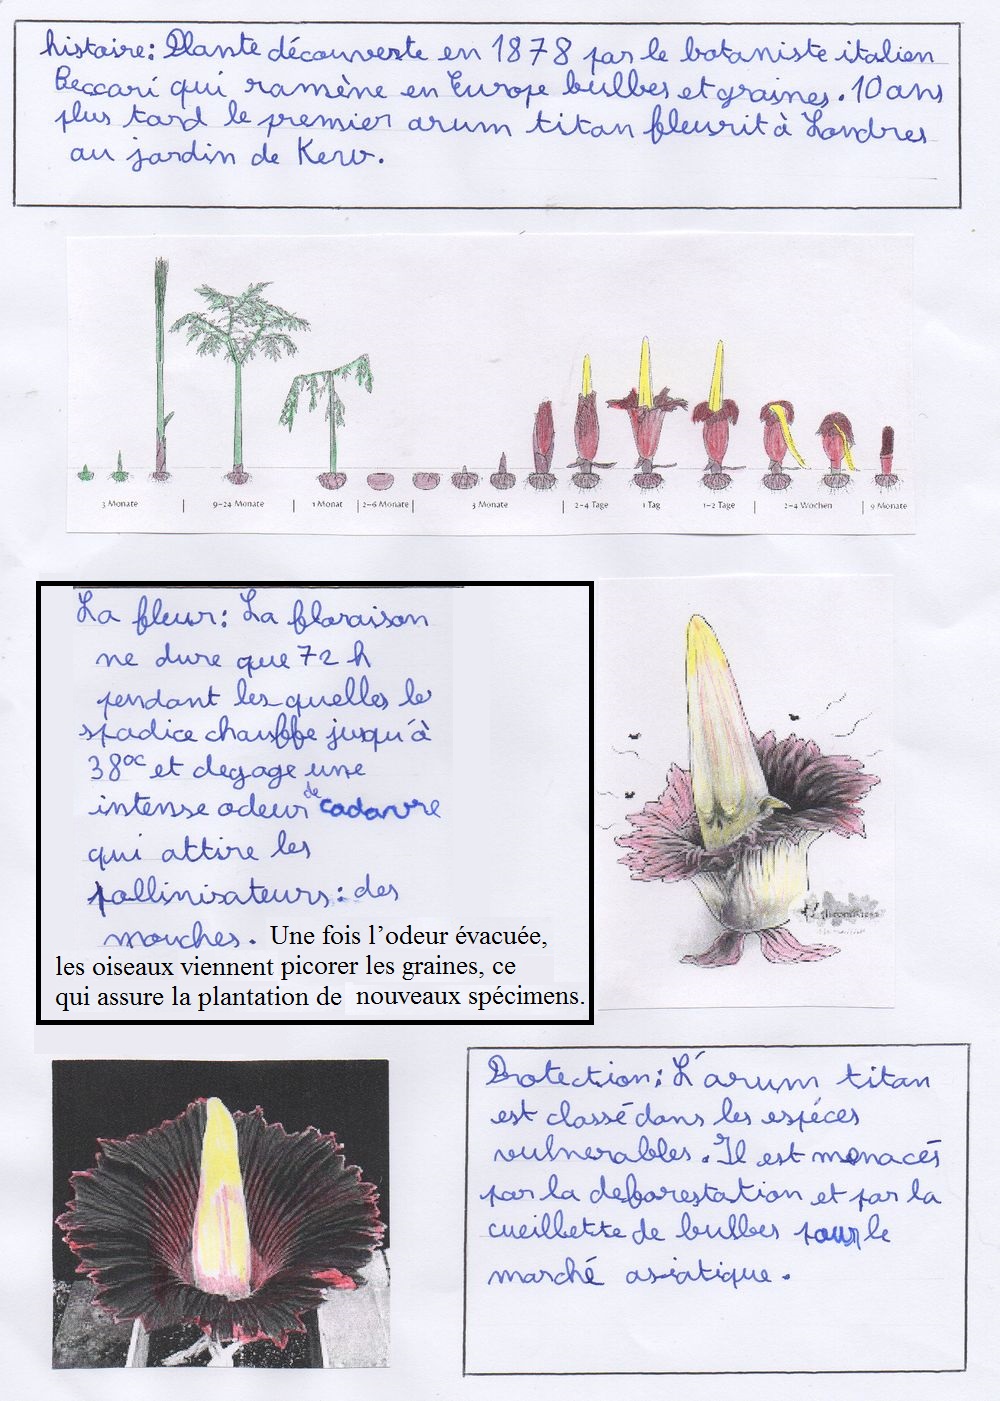 histoire: Plante découverte en 1878 par le botaniste italien
Beccari qui ramène en Europe bulbes et graines. 10 ans
plus tard le premier arum titan fleurit à Londres
au jardin de Kew.
3 Monate | 9-24 Monate | 1 Monat | 2-6 Monate | 3 Monate | 2-4 Tage | 1 Tag | 1-2 Tage | 2-4 Wochen | 9 Monate
La fleur: La floraison
ne dure que 72 h
pendant les quelles le
spadice chauffe jusqu'à
38°C et degage une
intense odeur de cadavre
qui attire les
pollinisateurs: des
mouches. Une fois l'odeur évacuée,
les oiseaux viennent picorer les graines, ce
qui assure la plantation de nouveaux spécimens.
Protection: L'arum titan
est classé dans les espéces
vulnerables. Il est menacés
par la deforestation et par la
cueillette de bulbes pour le
marché asiatique.